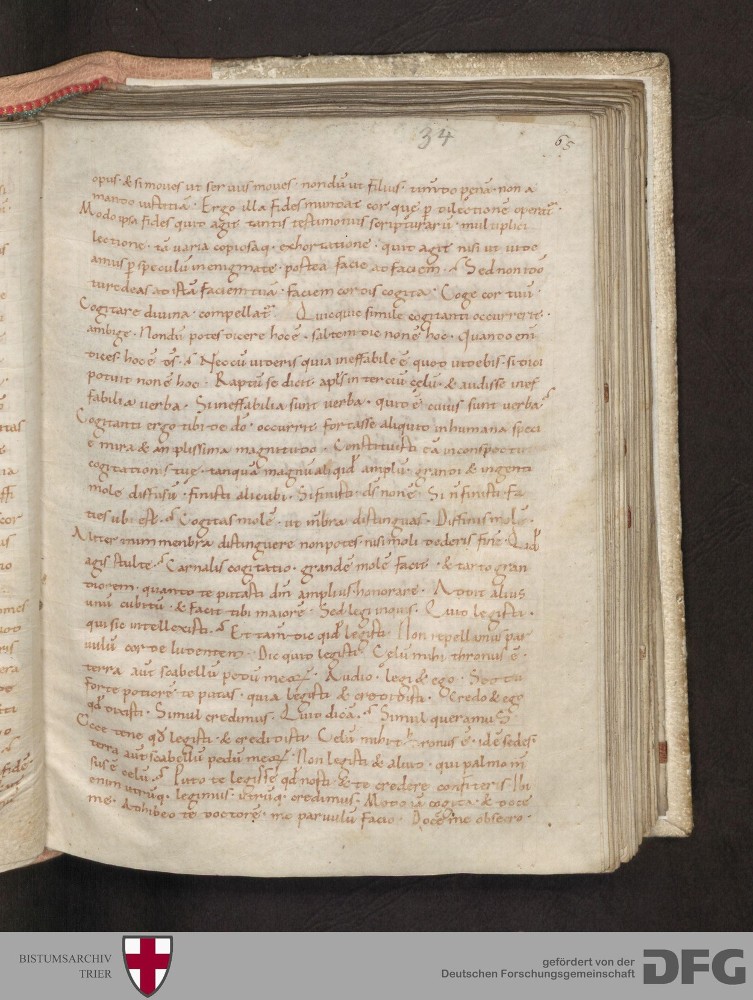 34
65
opus · & si moues ut seruus moues · nondū ut filius · timendo penā · non a
mando iustitiā · Ergo illa fides mundat cor quę p dilectionē operat̄ ·
Modo ipsa fides quid agit tantis testimoniis scripturarū · multiplici
lectione · tā uaria copiosaq · exhortatione · quid agit nisi ut uide
amus p speculū in enigmate · postea facie ad faciem · Sed non
tu redeas ad istā faciem tuā · faciem cordis cogita · Coge cor tuū ·
Cogitare diuina · compellat̄ · Quicquid simile cogitanti occurrerit ·
abige · Nondū potes dicere hoc ē · saltem dic non ē hoc · Quando enī
dices hoc ē d̄s · Nec cū uideris quia ineffabile ē quod uidebis · si dici
potuit non ē hoc · Raptū se dicit apls in terciū cęlū · & audisse inef
fabilia uerba · Si ineffabilia sunt uerba · quid ē cuius sunt uerba
Cogitanti ergo tibi de dō · occurrit fortasse aliquid in humana speci
e mira & amplissima magnitudo · Constituisti eā in conspectu
cogitationis tuę · tanquā magnū aliqid amplū grandi & ingenti
mole diffusū · finisti alicubi · Si finisti d̄s non ē · Si n̄ finisti fa
cies ubi est · Cogitas molē · ut mbra distinguas · Diffinis molē ·
Aliter enim menbra distinguere non potes nisi moli dederis finē · Qid
agis stulte · Carnalis cogitatio · grandē molē facit · & tanto gran
diorem · quanto te putasti dm̄ amplius honorare · Addit alius
unū cubitū · & facit tibi maiorē · Sed legi inquis · Quid legisti ·
qui sic intellexisti · Et tam̄ dic qid legisti · Non repellamus par
uulū corde ludentem · Dic quid legisti · Celū mihi thronus ē ·
terra aut scabellū pedū meoꝝ · Audio · legi & ego · Sed tu
forte potiorē te putas · quia legisti & credidisti · Credo & ego
qd dixisti · Simul credimus · Quid dicā · Simul queramus
Ecce tene qd legisti & credidisti · Celū mihi thronus ē · id ē sedes ·
terra aut scabellū pedū meoꝝ · Non legisti & aliud · qui palmo
sus ē celū · Puto te legisse qd nosti · & te credere confiteris · Ibi
enim utrūq · legimus · utrūq · credimus · Modo iā cogita · & doce
me · Adhibeo te doctorē · me paruulū facio · Doce me obsecro ·
BISTUMSARCHIV
TRIER
gefördert von der
Deutschen Forschungsgemeinschaft
DFG